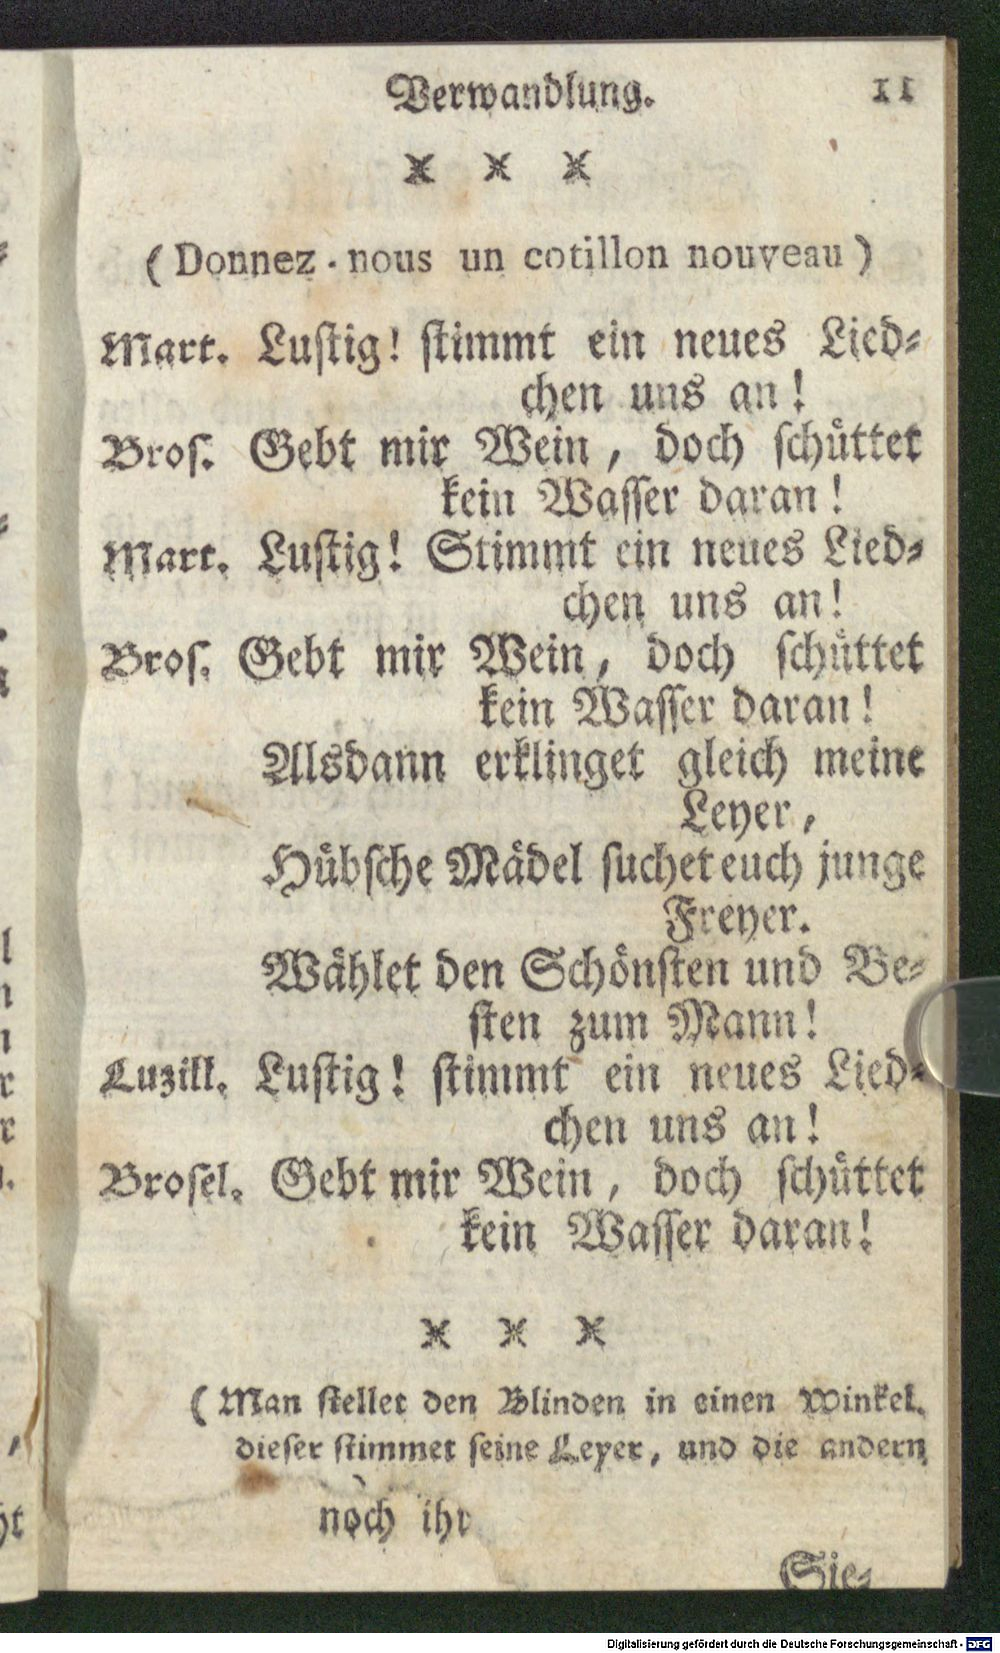 Verwandlung. 11
(Donnez-nous un cotillon nouveau)
Mart. Lustig! stimmt ein neues Lied⸗
chen uns an!
Bros. Gebt mir Wein, doch schüttet
kein Wasser daran!
Mart. Lustig! Stimmt ein neues Lied⸗
chen uns an!
Bros. Gebt mir Wein, doch schüttet
kein Wasser daran!
Alsdann erklinget gleich meine
Leyer,
Hübsche Mädel suchet euch junge
Freyer.
Wählet den Schönsten und Be⸗
sten zum Mann!
Luzill. Lustig! stimmt ein neues Lied⸗
chen uns an!
Brosel. Gebt mir Wein, doch schüttet
kein Wasser daran!
(Man stellet den Blinden in einen Winkel.
dieser stimmet seine Leyer, und die andern
noch ihr
Sie⸗
Digitalisierung gefördert durch die Deutsche Forschungsgemeinschaft - DFG